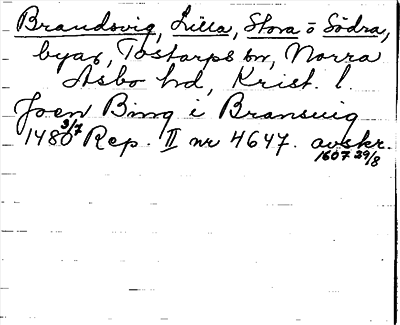 Brandsvig, Lilla, Stora o Södra,
byar, Tostarps sn, Norra
Åsbo hd, Krist. l.
Joen Bing i Bransuig
1480 3/7 Rep. II nr 4647. avskr.
1607 29/8